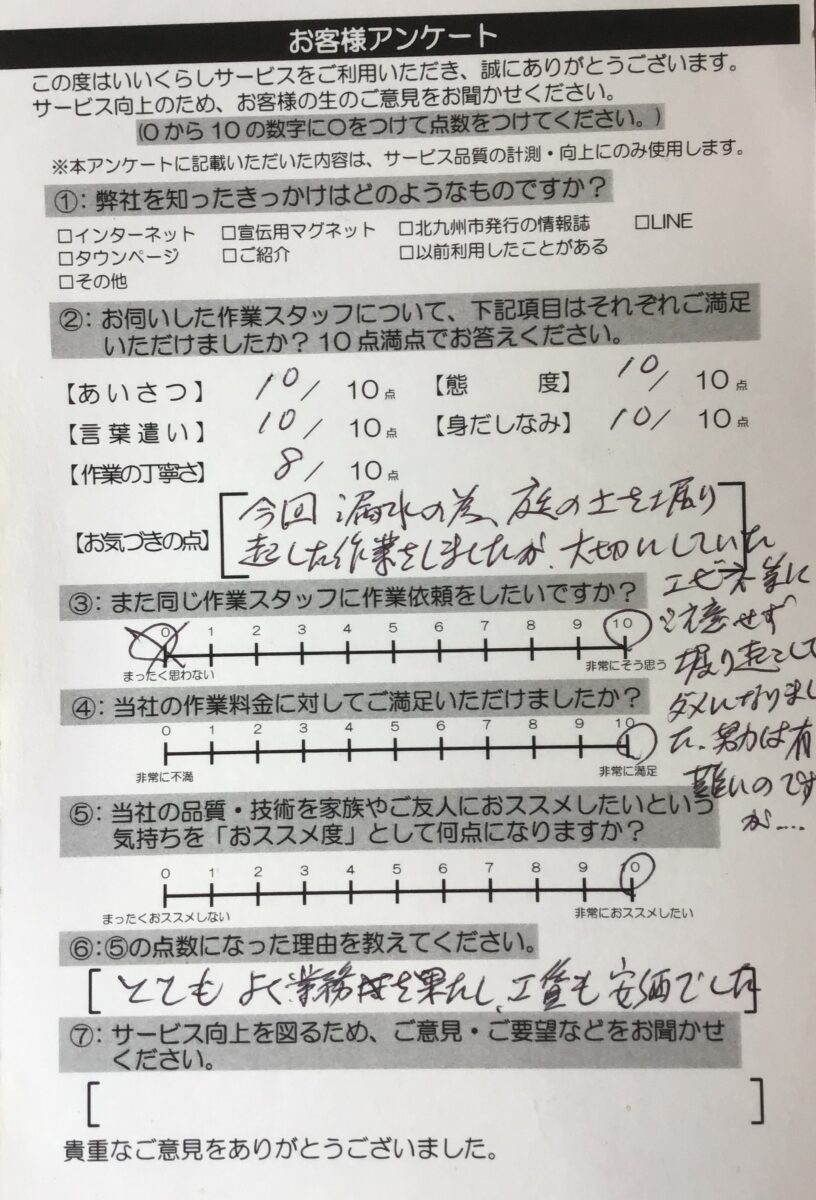 お客様アンケート
この度はいいくらしサービスをご利用いただき、誠にありがとうございます。
サービス向上のため、お客様の生のご意見をお聞かせください。
(0から10の数字に○をつけて点数をつけてください。)
※本アンケートに記載いただいた内容は、サービス品質の計測・向上にのみ使用します。
①:弊社を知ったきっかけはどのようなものですか?
□インターネット □宣伝用マグネット □北九州市発行の情報誌 □LINE
□タウンページ □ご紹介 □以前利用したことがある
□その他
②:お伺いした作業スタッフについて、下記項目はそれぞれご満足
いただけましたか?10点満点でお答えください。
【あいさつ】 10/ 10点 【態度】 10/ 10点
【言葉遣い】 10/ 10点 【身だしなみ】 10/ 10点
【作業の丁寧さ】 8/ 10点
【お気づきの点】
今回漏水の為、庭の土を堀り
起した作業をしましたが、大切にしていた
エビネ等に
注意せず
堀り起こして
ダメになりまし
た、努力は有
難いのです
が....
③:また同じ作業スタッフに作業依頼をしたいですか?
0 1 2 3 4 5 6 7 8 9 10
まったく思わない 非常にそう思う
④:当社の作業料金に対してご満足いただけましたか?
0 1 2 3 4 5 6 7 8 9 10
非常に不満 非常に満足
⑤:当社の品質・技術を家族やご友人におススメしたいという
気持ちを「おススメ度」として何点になりますか?
0 1 2 3 4 5 6 7 8 9 10
まったくおススメしない 非常におススメしたい
⑥:⑤の点数になった理由を教えてください。
[とてもよく業務を果たし、工賃も安価でした]
⑦:サービス向上を図るため、ご意見・ご要望などをお聞かせ
ください。
貴重なご意見をありがとうございました。